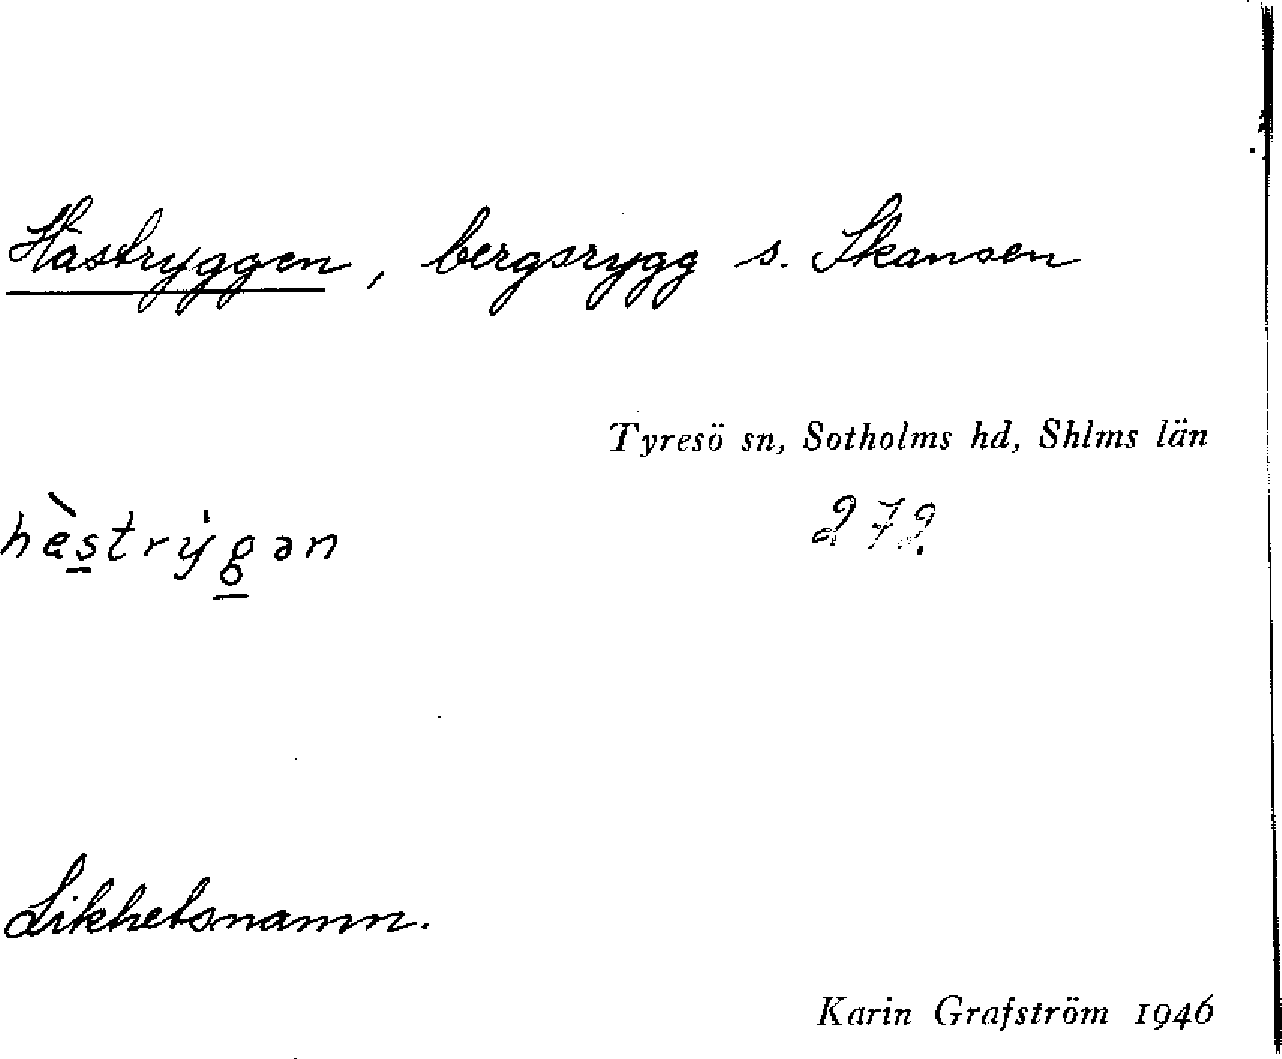 Hästryggen, bergsrygg s. Skansen
Tyresö sn, Sotholms hd, Shlms län
hèstrýgən
272.
Likhetsnamn.
Karin Grafström 1946